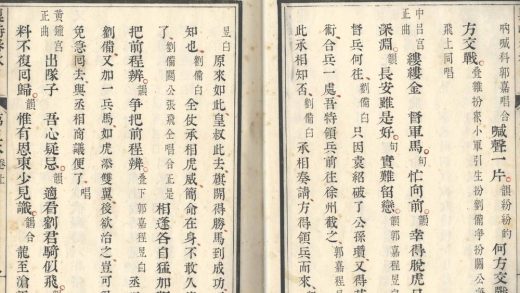 吶喊科郭嘉唱合喊聲一片韻紛紛何方交戰
方交戰疊雜扮衆小軍引生扮劉備淨扮關公
飛上同唱
中呂宮正曲縷縷金督軍馬句忙向前韻幸得脫虎口
深淵韻長安雖是好句實難留戀韻郭嘉程昱白
督兵何往劉備白只因袁紹破了公孫瓚又得
術合兵一處特領兵前往徐州截之郭嘉程昱
此承相知否劉備白承相奏請方得領兵而來
昱白原來如此皇叔此去旗開得勝馬到成功
知也劉備白全仗承相虎威簡命在身不敢久
了劉備關公張飛仝唱合正是相逢各自猛加
把前程辨韻爭把前程辨疊下郭嘉程昱白丞
劉備又加一兵馬如虎添雙翼後欲治之豈可
免急回去與丞相商議便了唱
黃鐘宮正曲出隊子吾心疑忌韻適看劉君騎似飛
料不復回歸韻惟有恩東少見識韻合龍至滄